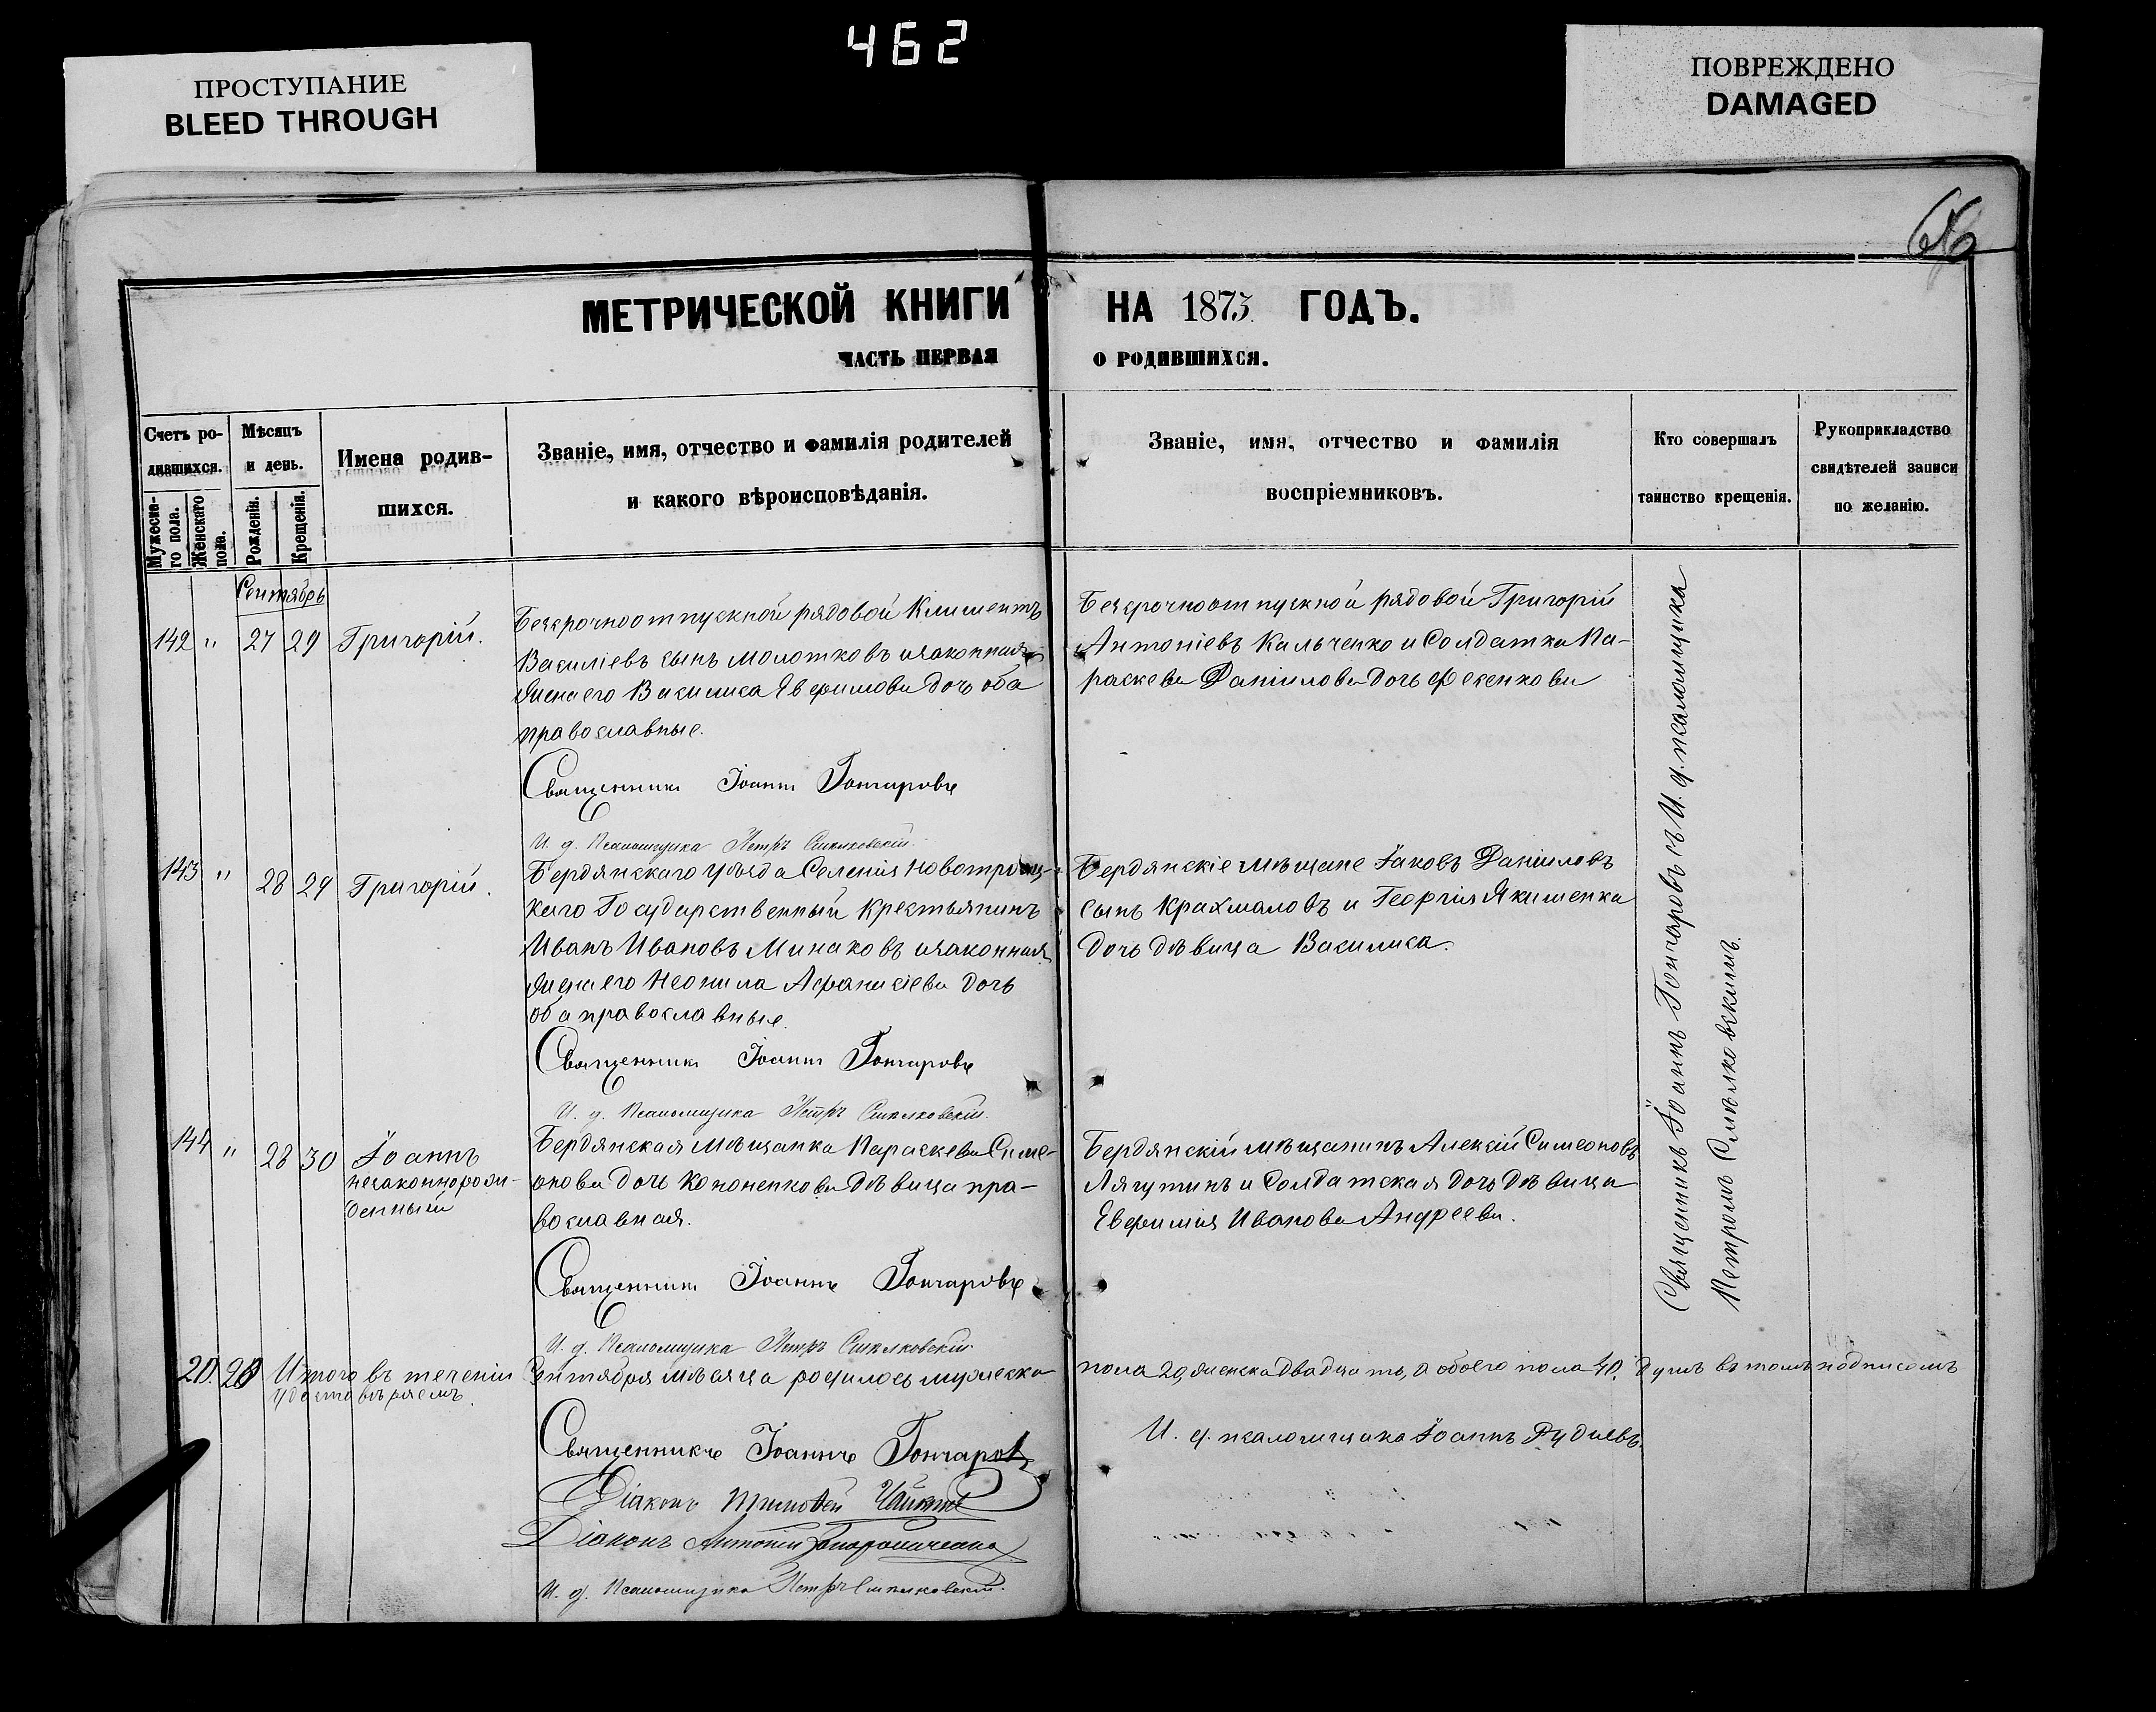 462
ПРОСТУПАНИЕ
BLEED THROUGH
ПОВРЕЖДЕНО
DAMAGED
МЕТРИЧЕСКОЙ КНИГИ НА 1873 ГОДЪ.
ЧАСТЬ ПЕРВАЯ О РОДИВШИХСЯ.
Счетъ ро-
дившихся.
Мужеска-
го пола.
Женскаго
пола.
Мѣсяцъ
и день.
Рожденія.
Крещенія.
Имена родив-
шихся.
Званіе, имя, отчество и фамилія родителей
и какого вѣроисповѣданія.
Званіе, имя, отчество и фамилія
воспріемниковъ.
Кто совершалъ
таинство крещенія.
Рукоприкладство
свидѣтелей записи
по желанію.
Сентябрь
142 " 27 29 Григорій.
Безсрочноотпускной рядовой Климентъ
Василіевъ сынъ Молотковъ и законная
жена его Василиса Евфимова дочь оба
православные.
Священникъ Іоаннъ Гончаровъ
И. д. Псаломщика Петръ Смѣлковскій.
Безсрочноотпускной рядовой Григорій
Антоніевъ Кальченко и Солдатка Па-
раскева Даніилова дочь Фесенкова
143 " 28 29 Григорій.
Бердянскаго уѣзда Селенія Новотроиц-
каго Государственный крестьянинъ
Иванъ Ивановъ Минаковъ и законная
жена его Неонила Афанасіева дочь
оба православные.
Священникъ Іоаннъ Гончаровъ
И. д. Псаломщика Петръ Смѣлковскій.
Бердянскіе мѣщане Іаковъ Даніиловъ
сынъ Крахмаловъ и Георгія Якименка
дочь дѣвица Василиса.
144 " 28 30 Іоаннъ
незаконнорож-
денный
Бердянская мѣщанка Параскева Симе-
онова дочь Кононенкова дѣвица пра-
вославная.
Священникъ Іоаннъ Гончаровъ
И. д. Псаломщика Петръ Смѣлковскій.
Бердянскій мѣщанинъ Алексій Симеоновъ
Лягутинъ и Солдатская дочь дѣвица
Евфимія Иванова Андреева.
Священникъ Іоаннъ Гончаровъ съ И. д. псаломщика
Петромъ Смѣлковскимъ.
20. 20 Итого въ теченіи Сентября мѣсяца родилось мужеска пола 20, женска двадцать, а обоего пола 40. душъ въ томъ подписомъ
удостовѣряемъ.
Священникъ Іоаннъ Гончаровъ
Діаконъ Тимофей
Діаконъ Антоній
И. д. Псаломщика Петръ Смѣлковскій.
И. д. псаломщика Іоаннъ Рудиевъ.